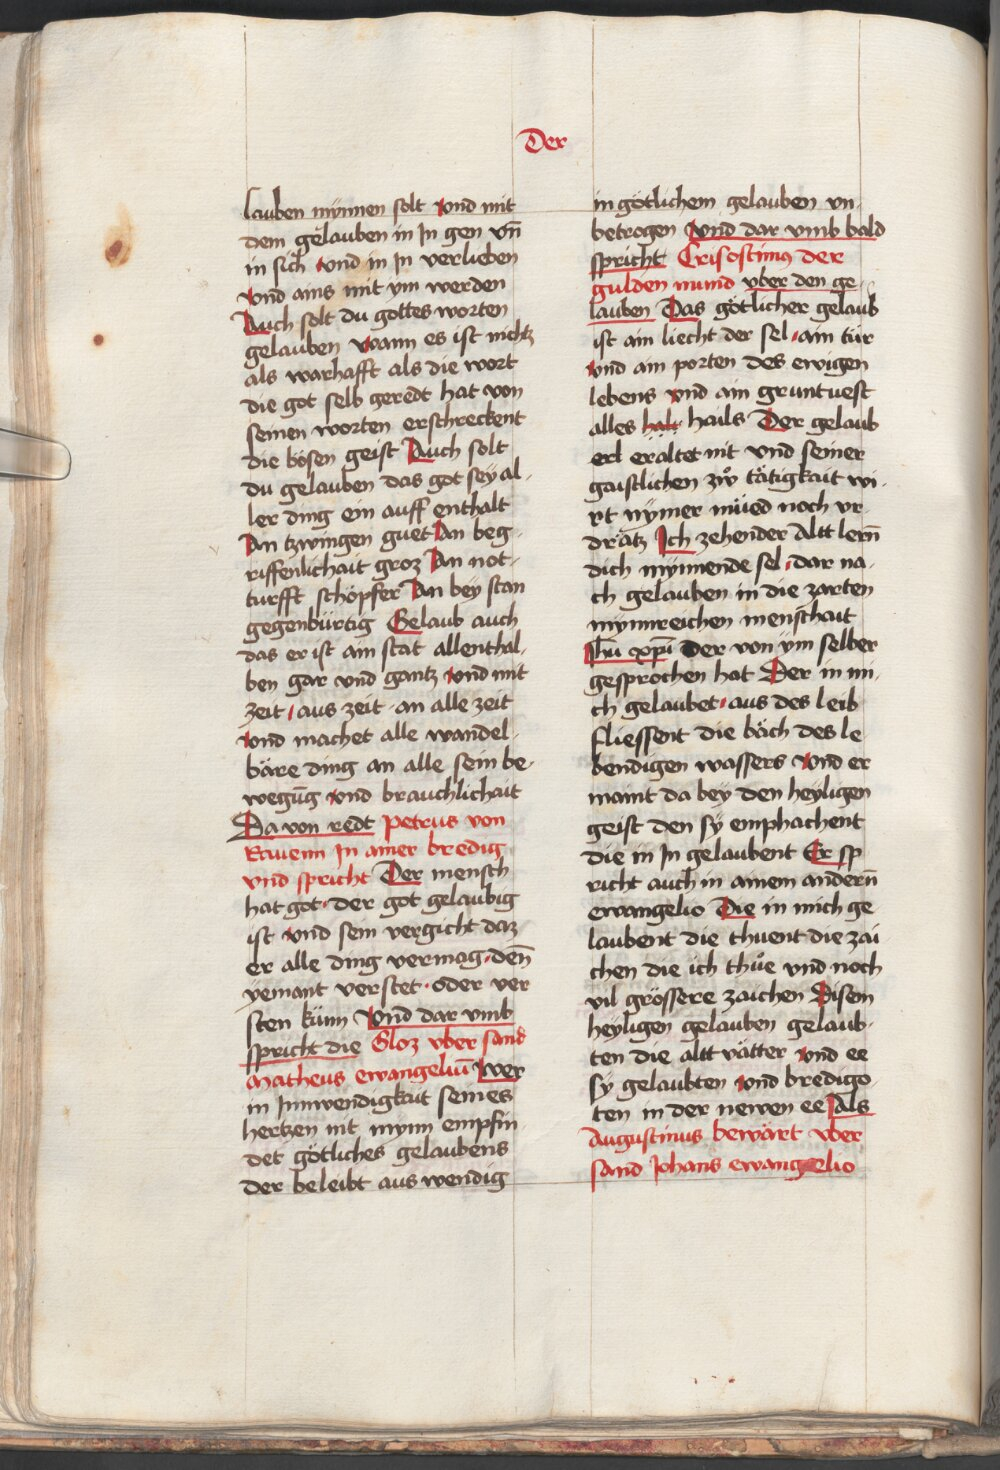 Der
lauben mynnen solt Vnd mit
dem gelauben in Jn gen vn̄
in sich Vnd in Jn verlieben
Vnd ains mit ym werden
Auch solt du gottes worten
gelauben Wann es ist nichtz
als warhafft als die wort
die got selb geredt hat von
seinen worten erschreckent
die bösen geist Auch solt
du gelauben das got sey al-
ler ding ein auff enthalt
An tzwingen guet An beg-
riffenlichait groz An not-
turfft schöpfer An bey stan
gegenbürtig Gelaub auch
das er ist ain stat allenthal-
ben gar vnd gantz Vnd mit
zeit / aus zeit · an alle zeit
Vnd machet alle wandel-
bäre ding an alle sein be-
wegūg Vnd brauchlichait
Da von redt Petrus von
Rauenn Jn ainer bredig
vnd spricht Der mensch
hat got · der got gelaubig
ist Vnd sein vergicht daz
er alle ding vermag · den̄
yemant verstet · oder ver
sten künn Vnd dar vmb
spricht die Gloz vber sand
Matheus ewangeliū Wer
in Jnnwendigkait seines
hertzen nit mynn empfin
det götliches gelaubens
der beleibt aus wendig
in götlichem gelauben vn-
betrogen Vnd dar vmb bald
spricht Crisostimus der
gulden mund vber den ge-
lauben Das götlicher gelaub
ist ain liecht der sel · ain tür
Vnd ain porten des ewigen
lebens Vnd ain gruntuest
alles halt hails Der gelaub
erl eraltet nit vnd seiner
gaistlichen zẘ tätigkait wi-
rt nymer müed noch vr-
drätz Jch zehender Altt lern̄
dich mynnende sel · dar na-
ch gelauben in die zarten
mynnreichen menschait
Jhū xp̄i Der von ym selber
gesprochen hat Der in mi-
ch gelaubet · aus des leib
fliessent die bäch des le
bendigen wassers Vnd er
maint da bey den heyligen
geist den sy emphachent
die in Jn gelaubent Er sp
richt auch in ainem andern̄
ewangelio Die in mich ge
laubent die thuent die zai
chen die ich thůe vnd noch
vil grössere zaichen Disem
heyligen gelauben gelaub-
ten die altt vätter Vnd ee
sy gelaubten Vnd bredigo-
ten in der newen ee Als
Augustinus bewärt vber
sand Johans ewangelio